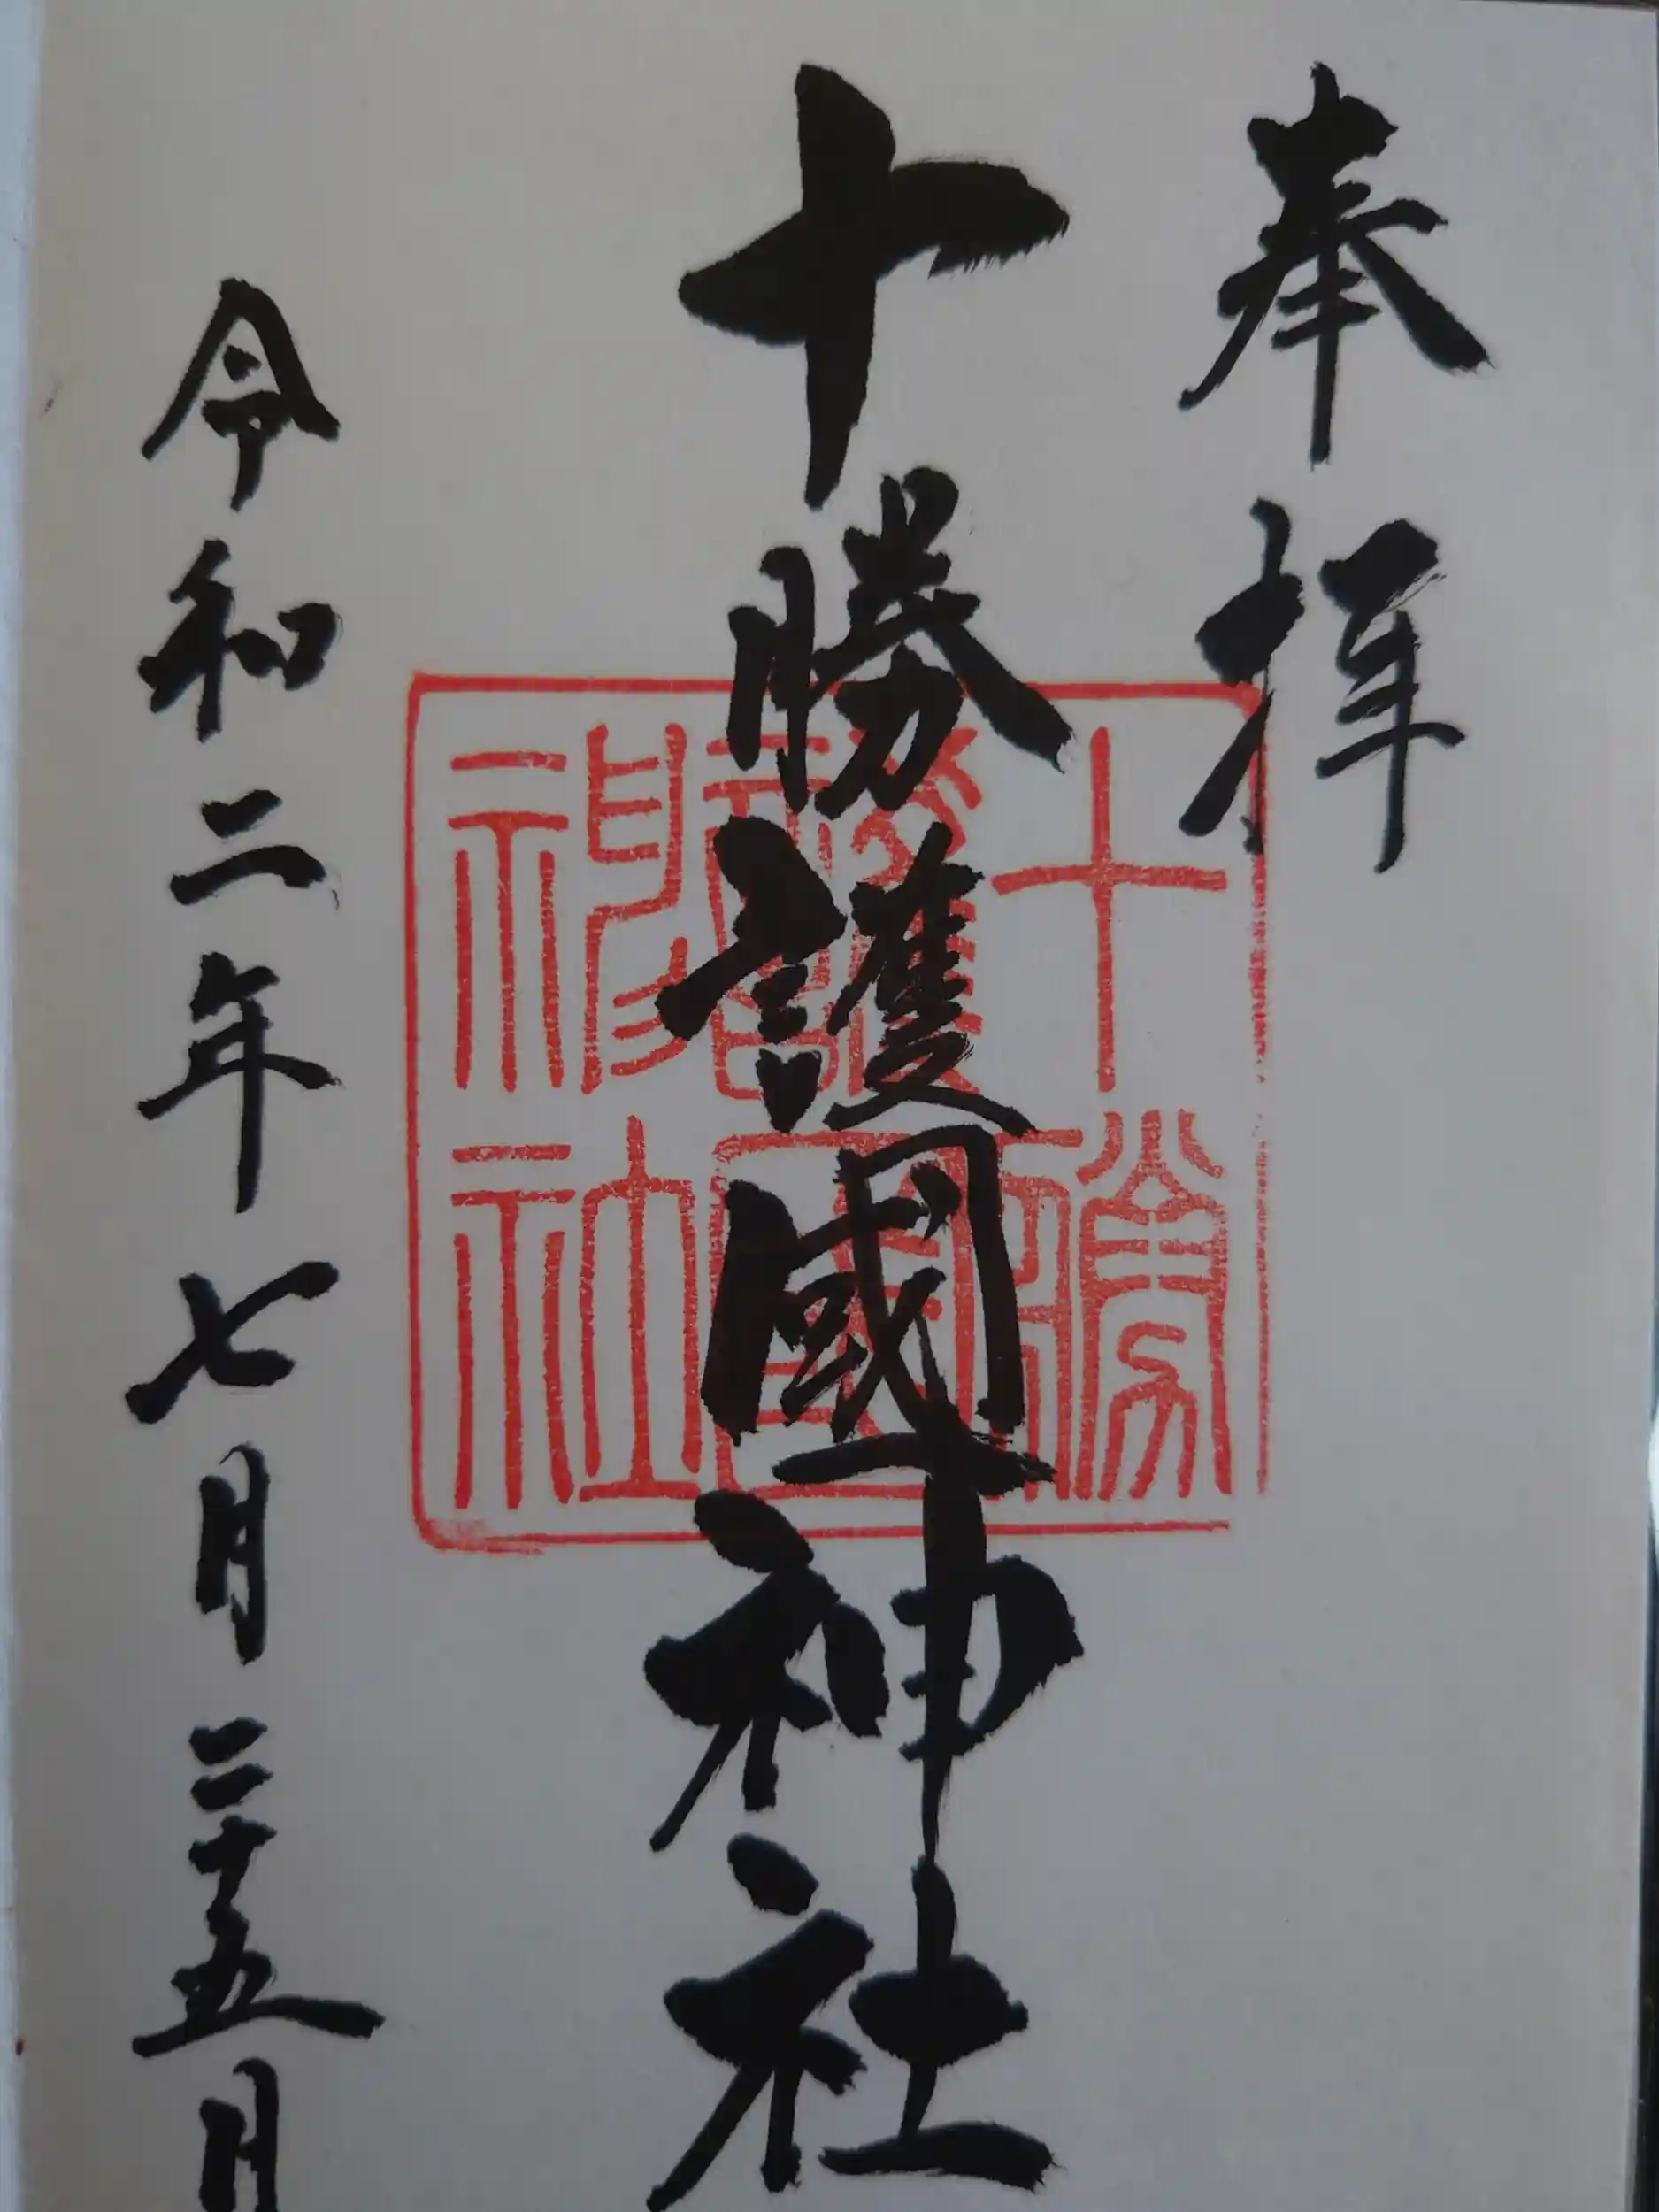 奉拝
十勝護國神社
十勝護國神社
令和二年七月二十五日